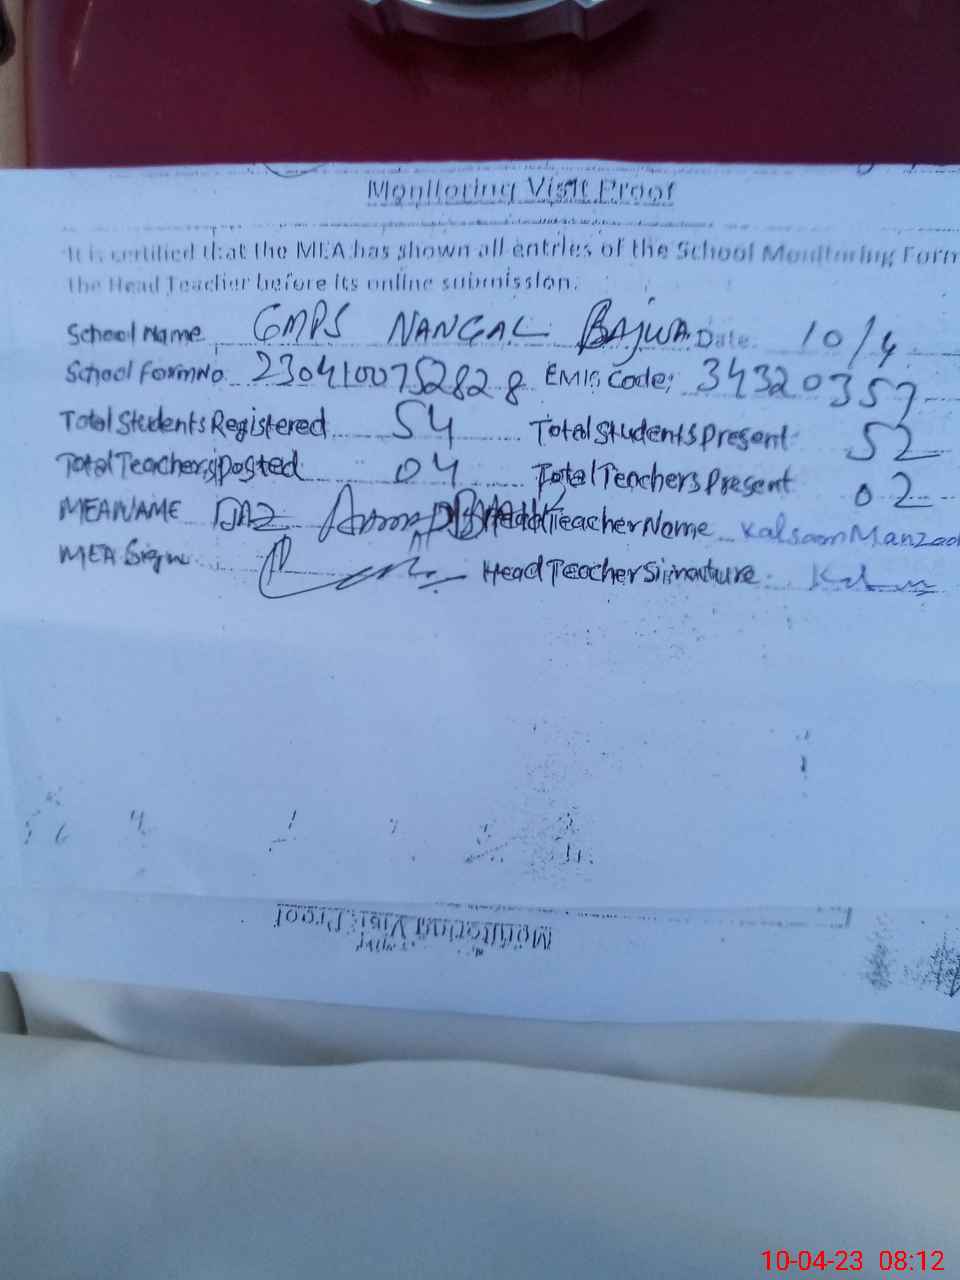 Monitoring Visit Proof
It is certified that the MEA has shown all entries of the School Monitoring Form
the Head Teacher before its online submission.
School Name GMPS NANGAL BAJWA Date: 10/4
School Form No 23041007528 28 EMIS Code: 34320357
Total Students Registered 54 Total Students Present 52
Total Teachers posted 04 Total Teachers Present 02
MEA NAME Head Teacher Name Kalsoom Manzoo
MEA Sign Head Teacher Signature
Monitoring Visit Proof
10-04-23 08:12